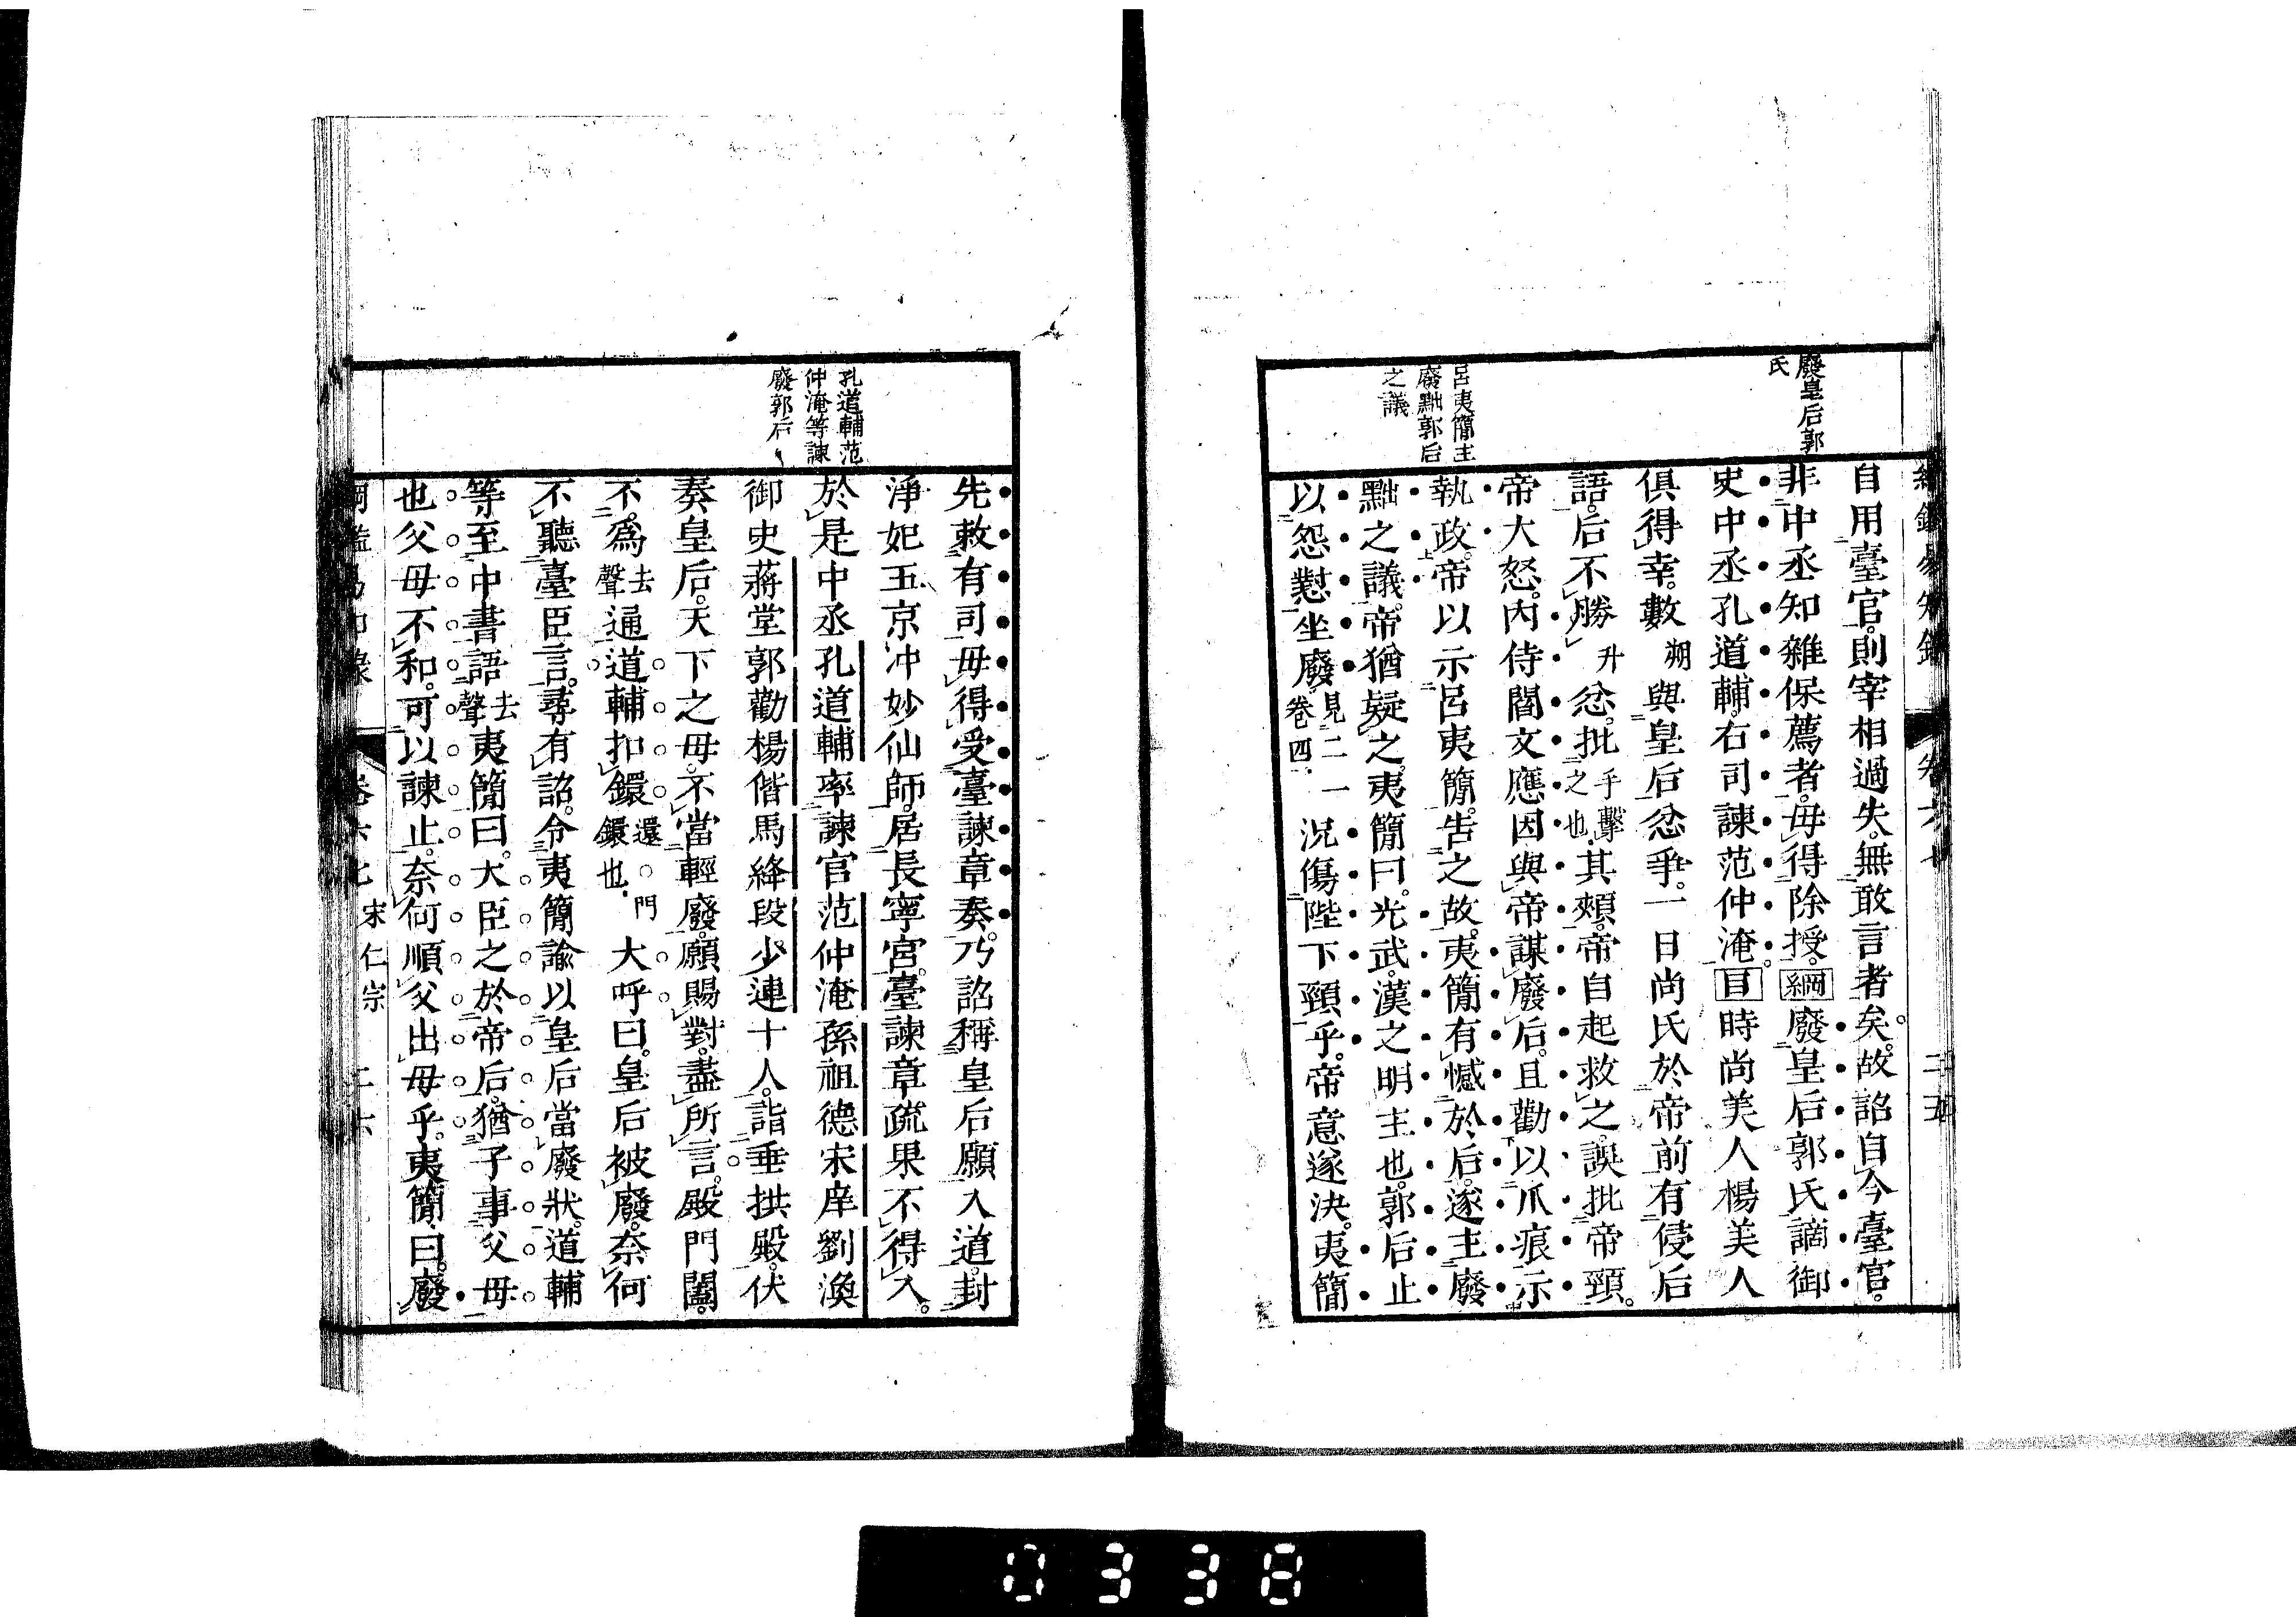 廢皇后郭
氏
呂夷簡主
廢黜郭后
之議
自用臺官則宰相過失無敢言者矣故詔自今臺官
非中丞知雜保薦者毋得除授綱廢皇后郭氏謫御
史中丞孔道輔右司諫范仲淹目時尚美人楊美人
俱得幸數朔與皇后忿爭一日尚氏於帝前有侵后
語后不勝升忿批手擊之也其頰帝自起救之誤批帝頸
帝大怒內侍閻文應因與帝謀廢后且勸以爪痕示
執政帝以示呂夷簡告之故夷簡有憾於后遂主廢
黜之議帝猶疑之夷簡曰光武漢之明主也郭后止
以怨懟坐廢見二一卷四況傷陛下頸乎帝意遂決夷簡
孔道輔范
仲淹等諫
廢郭后
先敕有司毋得受臺諫章奏乃詔稱皇后願入道封
淨妃玉京冲妙仙師居長寧宮臺諫章疏果不得入
於是中丞孔道輔率諫官范仲淹孫祖德宋庠劉渙
御史蔣堂郭勸楊偕馬絳段少連十人詣垂拱殿伏
奏皇后天下之母不當輕廢願賜對盡所言殿門闔
不爲去聲通道輔扣鐶還○門鐶也大呼曰皇后被廢奈何
不聽臺臣言尋有詔令夷簡諭以皇后當廢狀道輔
等至中書語去聲夷簡曰大臣之於帝后猶子事父母
也父母不和可以諫止奈何順父出母乎夷簡曰廢
卷六七 宋仁宗 二六
0338